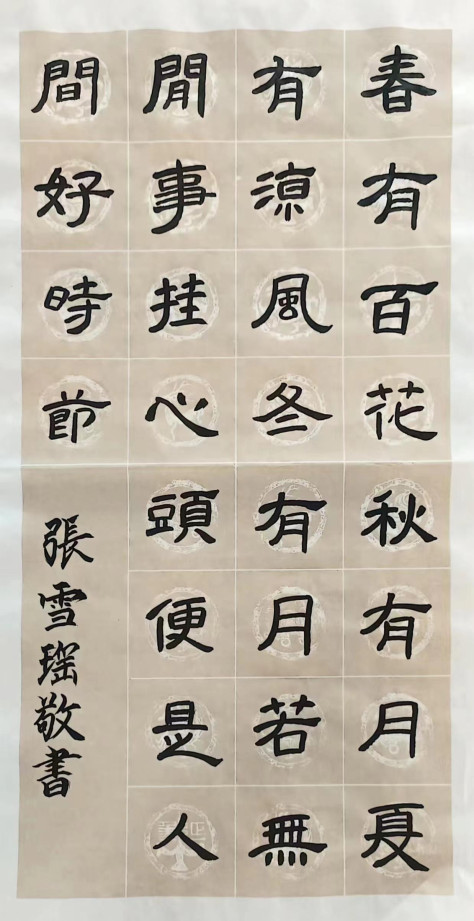 春有百花秋有月夏
有涼風冬有月若無
閒事挂心頭便是人
間好時節
張雪瑤敬書